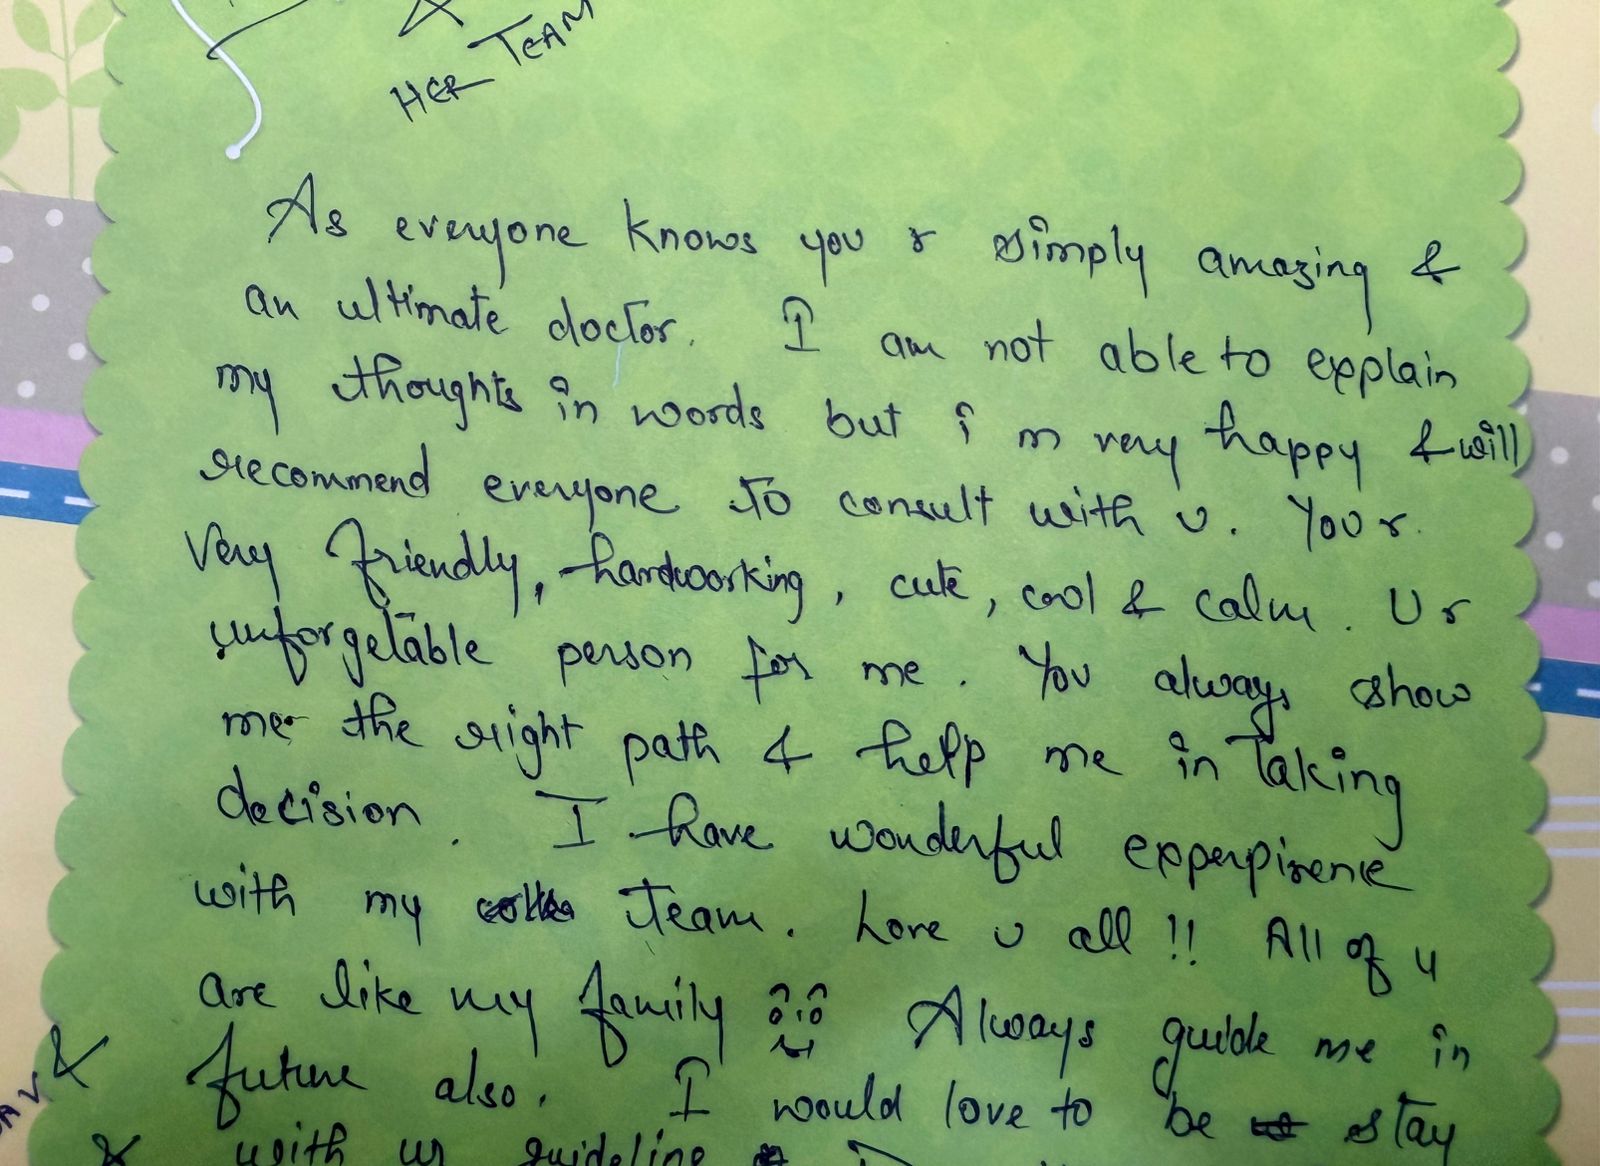 &
HER TEAM
As everyone knows you r simply amazing &
an ultimate doctor. I am not able to explain
my thoughts in words but i m very happy & will
recommend everyone to consult with u. You r
very friendly, hardworking, cute, cool & calm. U r
unforgetable person for me. You always show
me the right path & help me in taking
decision. I have wonderful experpirence
with my team. Love u all !! All of u
are like my family Always guide me in
& future also. I would love to be stay
& with ur guideline